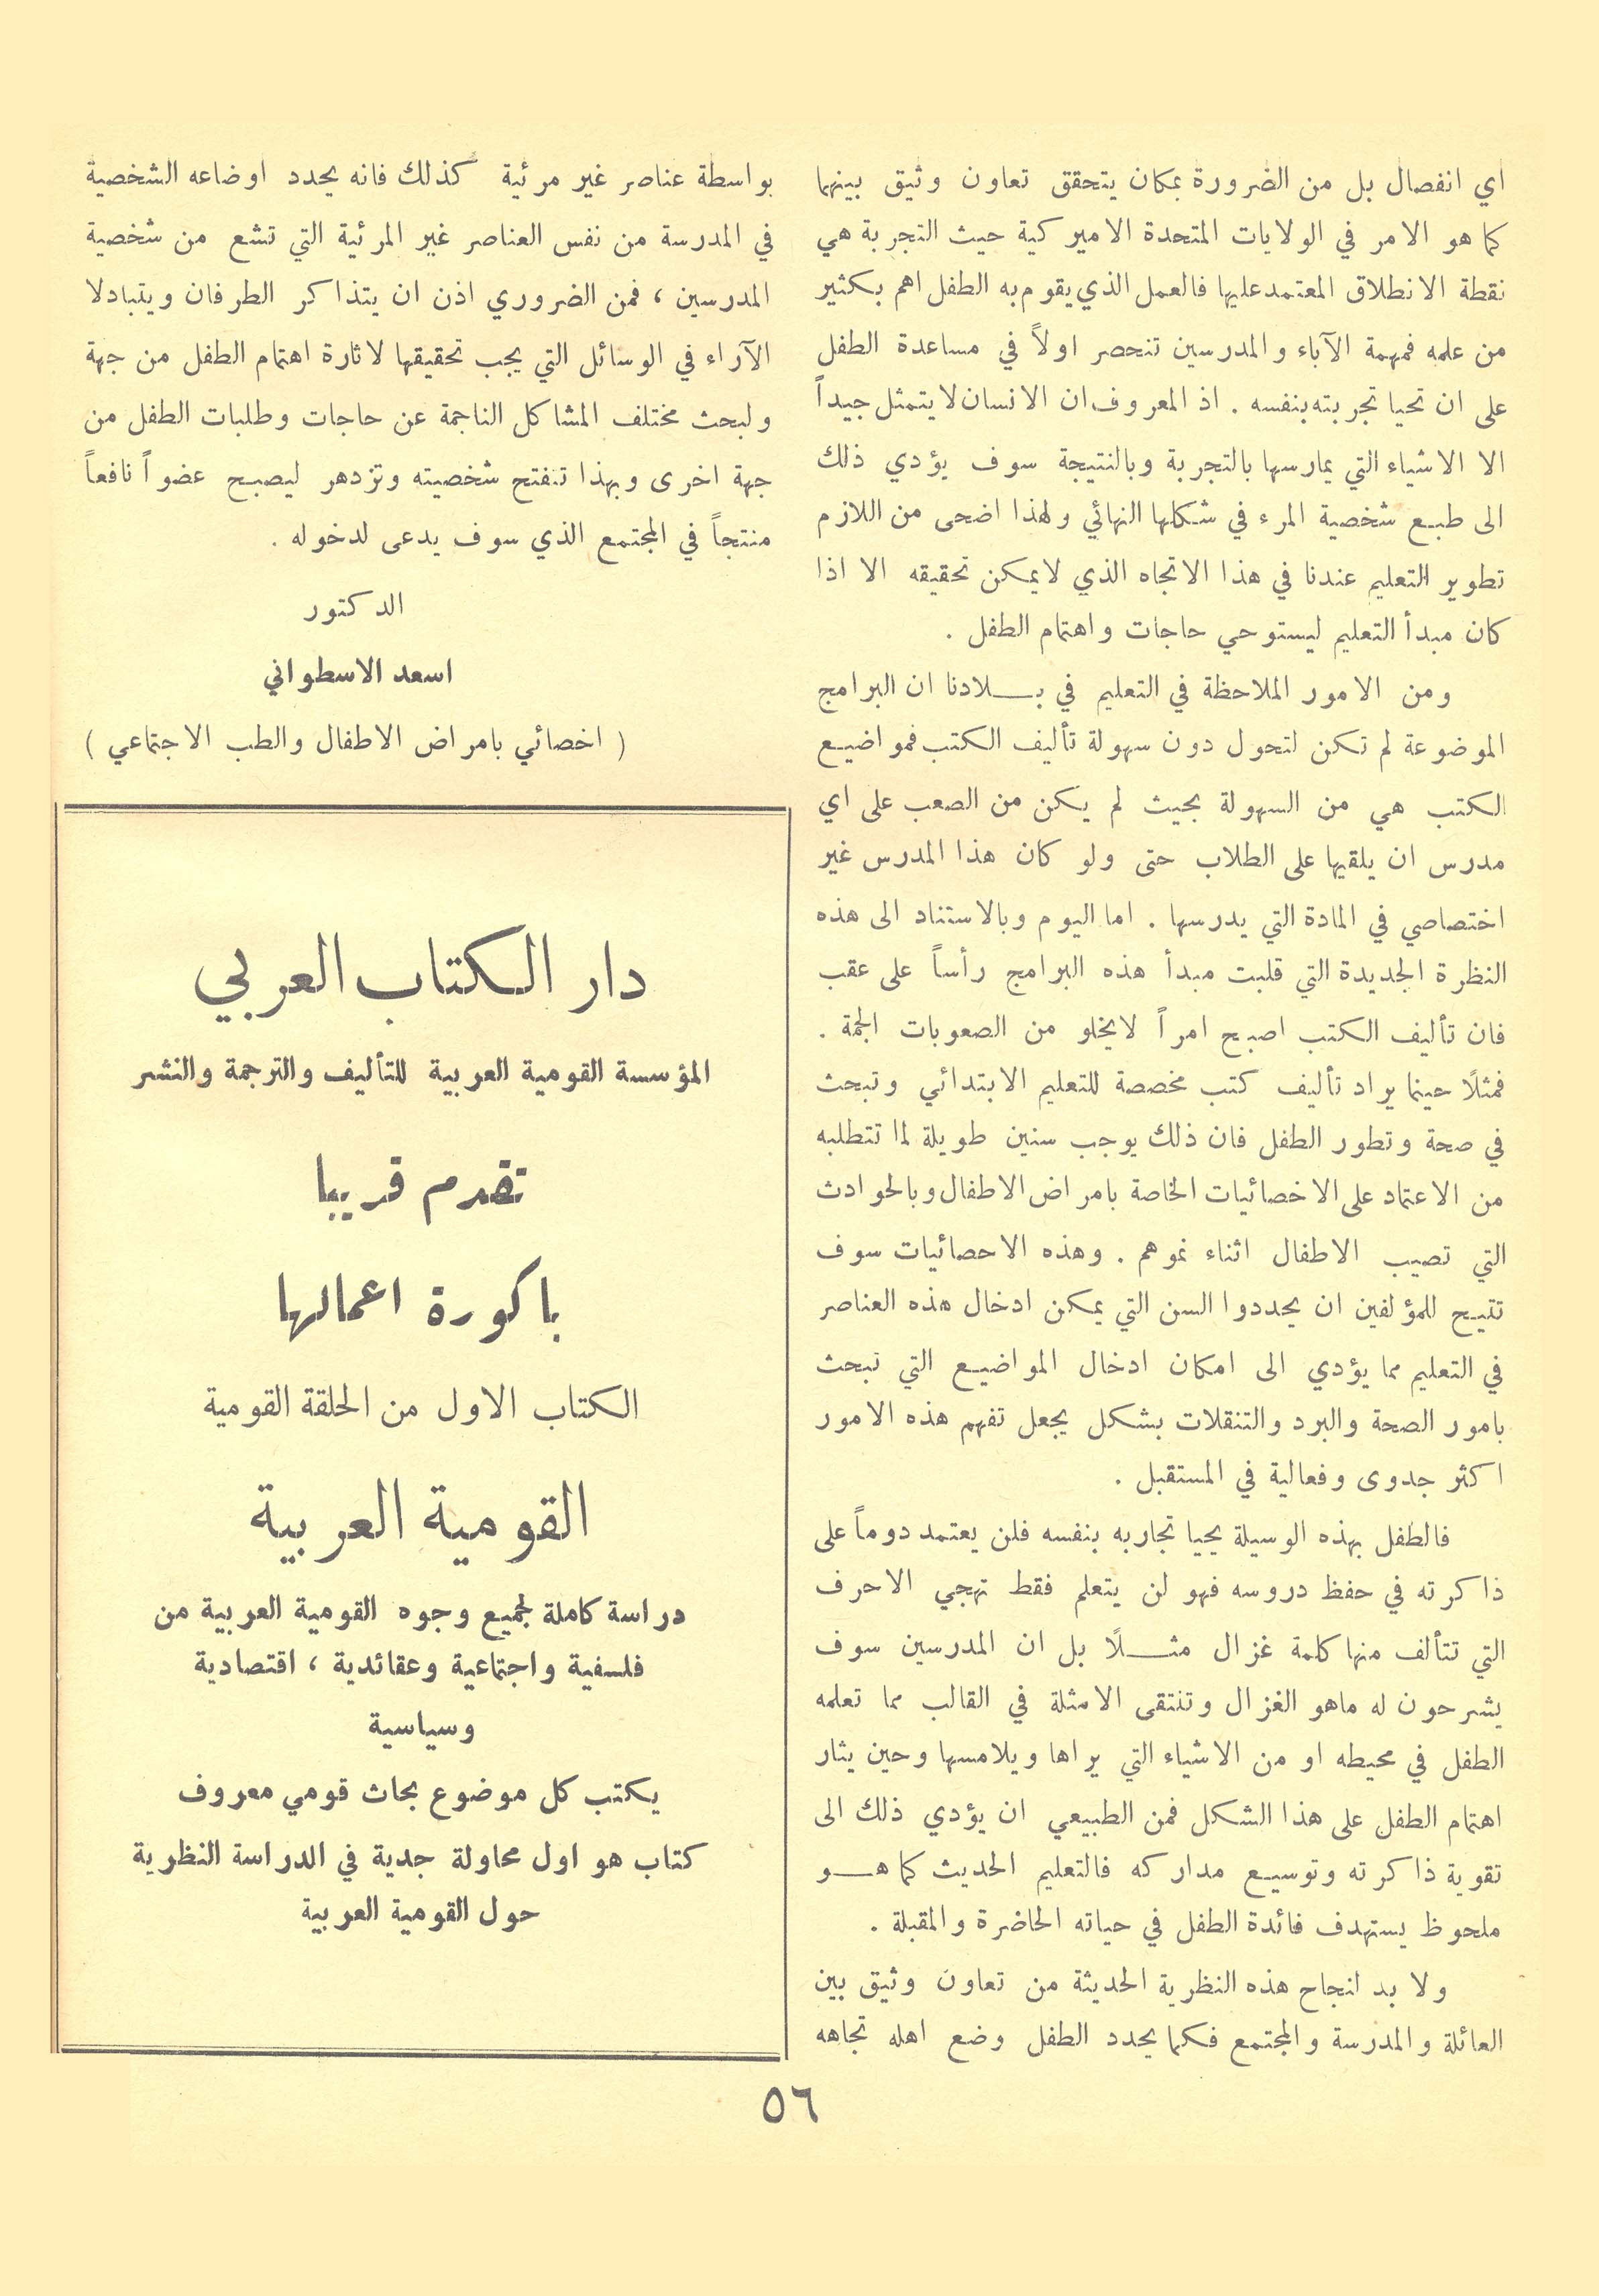 اي انفصال بل من الضرورة بمكان يتحقق تعاون وثيق بينهما
كما هو الامر في الولايات المتحدة الاميركية حيث التجربة هي
نقطة الانطلاق المعتمد عليها فالعمل الذي يقوم به الطفل اهم بكثير
من علمه فمهمة الآباء والمدرسين تنحصر اولاً في مساعدة الطفل
على ان تحيا تجربته بنفسه . اذ المعروف ان الانسان لا يتمثل جيداً
الا الاشياء التي يمارسها بالتجربة وبالنتيجة سوف يؤدي ذلك
الى طبع شخصية المرء في شكلها النهائي ولهذا اضحى من اللازم
تطوير التعليم عندنا في هذا الاتجاه الذي لايمكن تحقيقه الا اذا
كان مبدأ التعليم ليستوحي حاجات واهتمام الطفل .
ومن الامور الملاحظة في التعليم في بلادنا ان البرامج
الموضوعة لم تكن لتحول دون سهولة تأليف الكتب فمواضيع
الكتب هي من السهولة بحيث لم يكن من الصعب على اي
مدرس ان يلقيها على الطلاب حتى ولو كان هذا المدرس غير
اختصاصي في المادة التي يدرسها . اما اليوم وبالاستناد الى هذه
النظرة الجديدة التي قلبت مبدأ هذه البرامج رأساً على عقب
فان تأليف الكتب اصبح امراً لايخلو من الصعوبات الجمة .
فمثلاً حينما يراد تأليف كتب مخصصة للتعليم الابتدائي وتبحث
في صحة وتطور الطفل فان ذلك يوجب سنين طويلة لما تتطلبه
من الاعتماد على الاخصائيات الخاصة بامراض الاطفال وبالحوادث
التي تصيب الاطفال اثناء نموهم . وهذه الاحصائيات سوف
تتيح للمؤلفين ان يحددوا السن التي يمكن ادخال هذه العناصر
في التعليم مما يؤدي الى امكان ادخال المواضيع التي تبحث
بامور الصحة والبرد والتنقلات بشكل يجعل تفهم هذه الامور
اكثر جدوى وفعالية في المستقبل .
فالطفل بهذه الوسيلة يحيا تجاربه بنفسه فلن يعتمد دوماً على
ذاكرته في حفظ دروسه فهو لن يتعلم فقط تهجي الاحرف
التي تتألف منها كلمة غزال مثلاً بل ان المدرسين سوف
يشرحون له ماهو الغزال وتنتقى الامثلة في القالب مما تعلمه
الطفل في محيطه او من الاشياء التي يراها ويلامسها وحين يثار
اهتمام الطفل على هذا الشكل فمن الطبيعي ان يؤدي ذلك الى
تقوية ذاكرته وتوسيع مداركه فالتعليم الحديث كما هو
ملحوظ يستهدف فائدة الطفل في حياته الحاضرة والمقبلة .
ولا بد لنجاح هذه النظرية الحديثة من تعاون وثيق بين
العائلة والمدرسة والمجتمع فكما يحدد الطفل وضع اهله تجاهه
بواسطة عناصر غير مرئية كذلك فانه يحدد اوضاعه الشخصية
في المدرسة من نفس العناصر غير المرئية التي تشع من شخصية
المدرسين ، فمن الضروري اذن ان يتذاكر الطرفان ويتبادلا
الآراء في الوسائل التي يجب تحقيقها لاثارة اهتمام الطفل من جهة
ولبحث مختلف المشاكل الناجمة عن حاجات وطلبات الطفل من
جهة اخرى وبهذا تنفتح شخصيته وتزدهر ليصبح عضواً نافعاً
منتجاً في المجتمع الذي سوف يدعى لدخوله .
الدكتور
اسعد الاسطواني
( اخصائي بامراض الاطفال والطب الاجتماعي )
دار الكتاب العربي
المؤسسة القومية العربية للتأليف والترجمة والنشر
تقدم قريبا
باكورة اعمالها
الكتاب الاول من الحلقة القومية
القومية العربية
دراسة كاملة لجميع وجوه القومية العربية من
فلسفية واجتماعية وعقائدية ، اقتصادية
وسياسية
يكتب كل موضوع بحاث قومي معروف
كتاب هو اول محاولة جدية في الدراسة النظرية
حول القومية العربية
٥٦